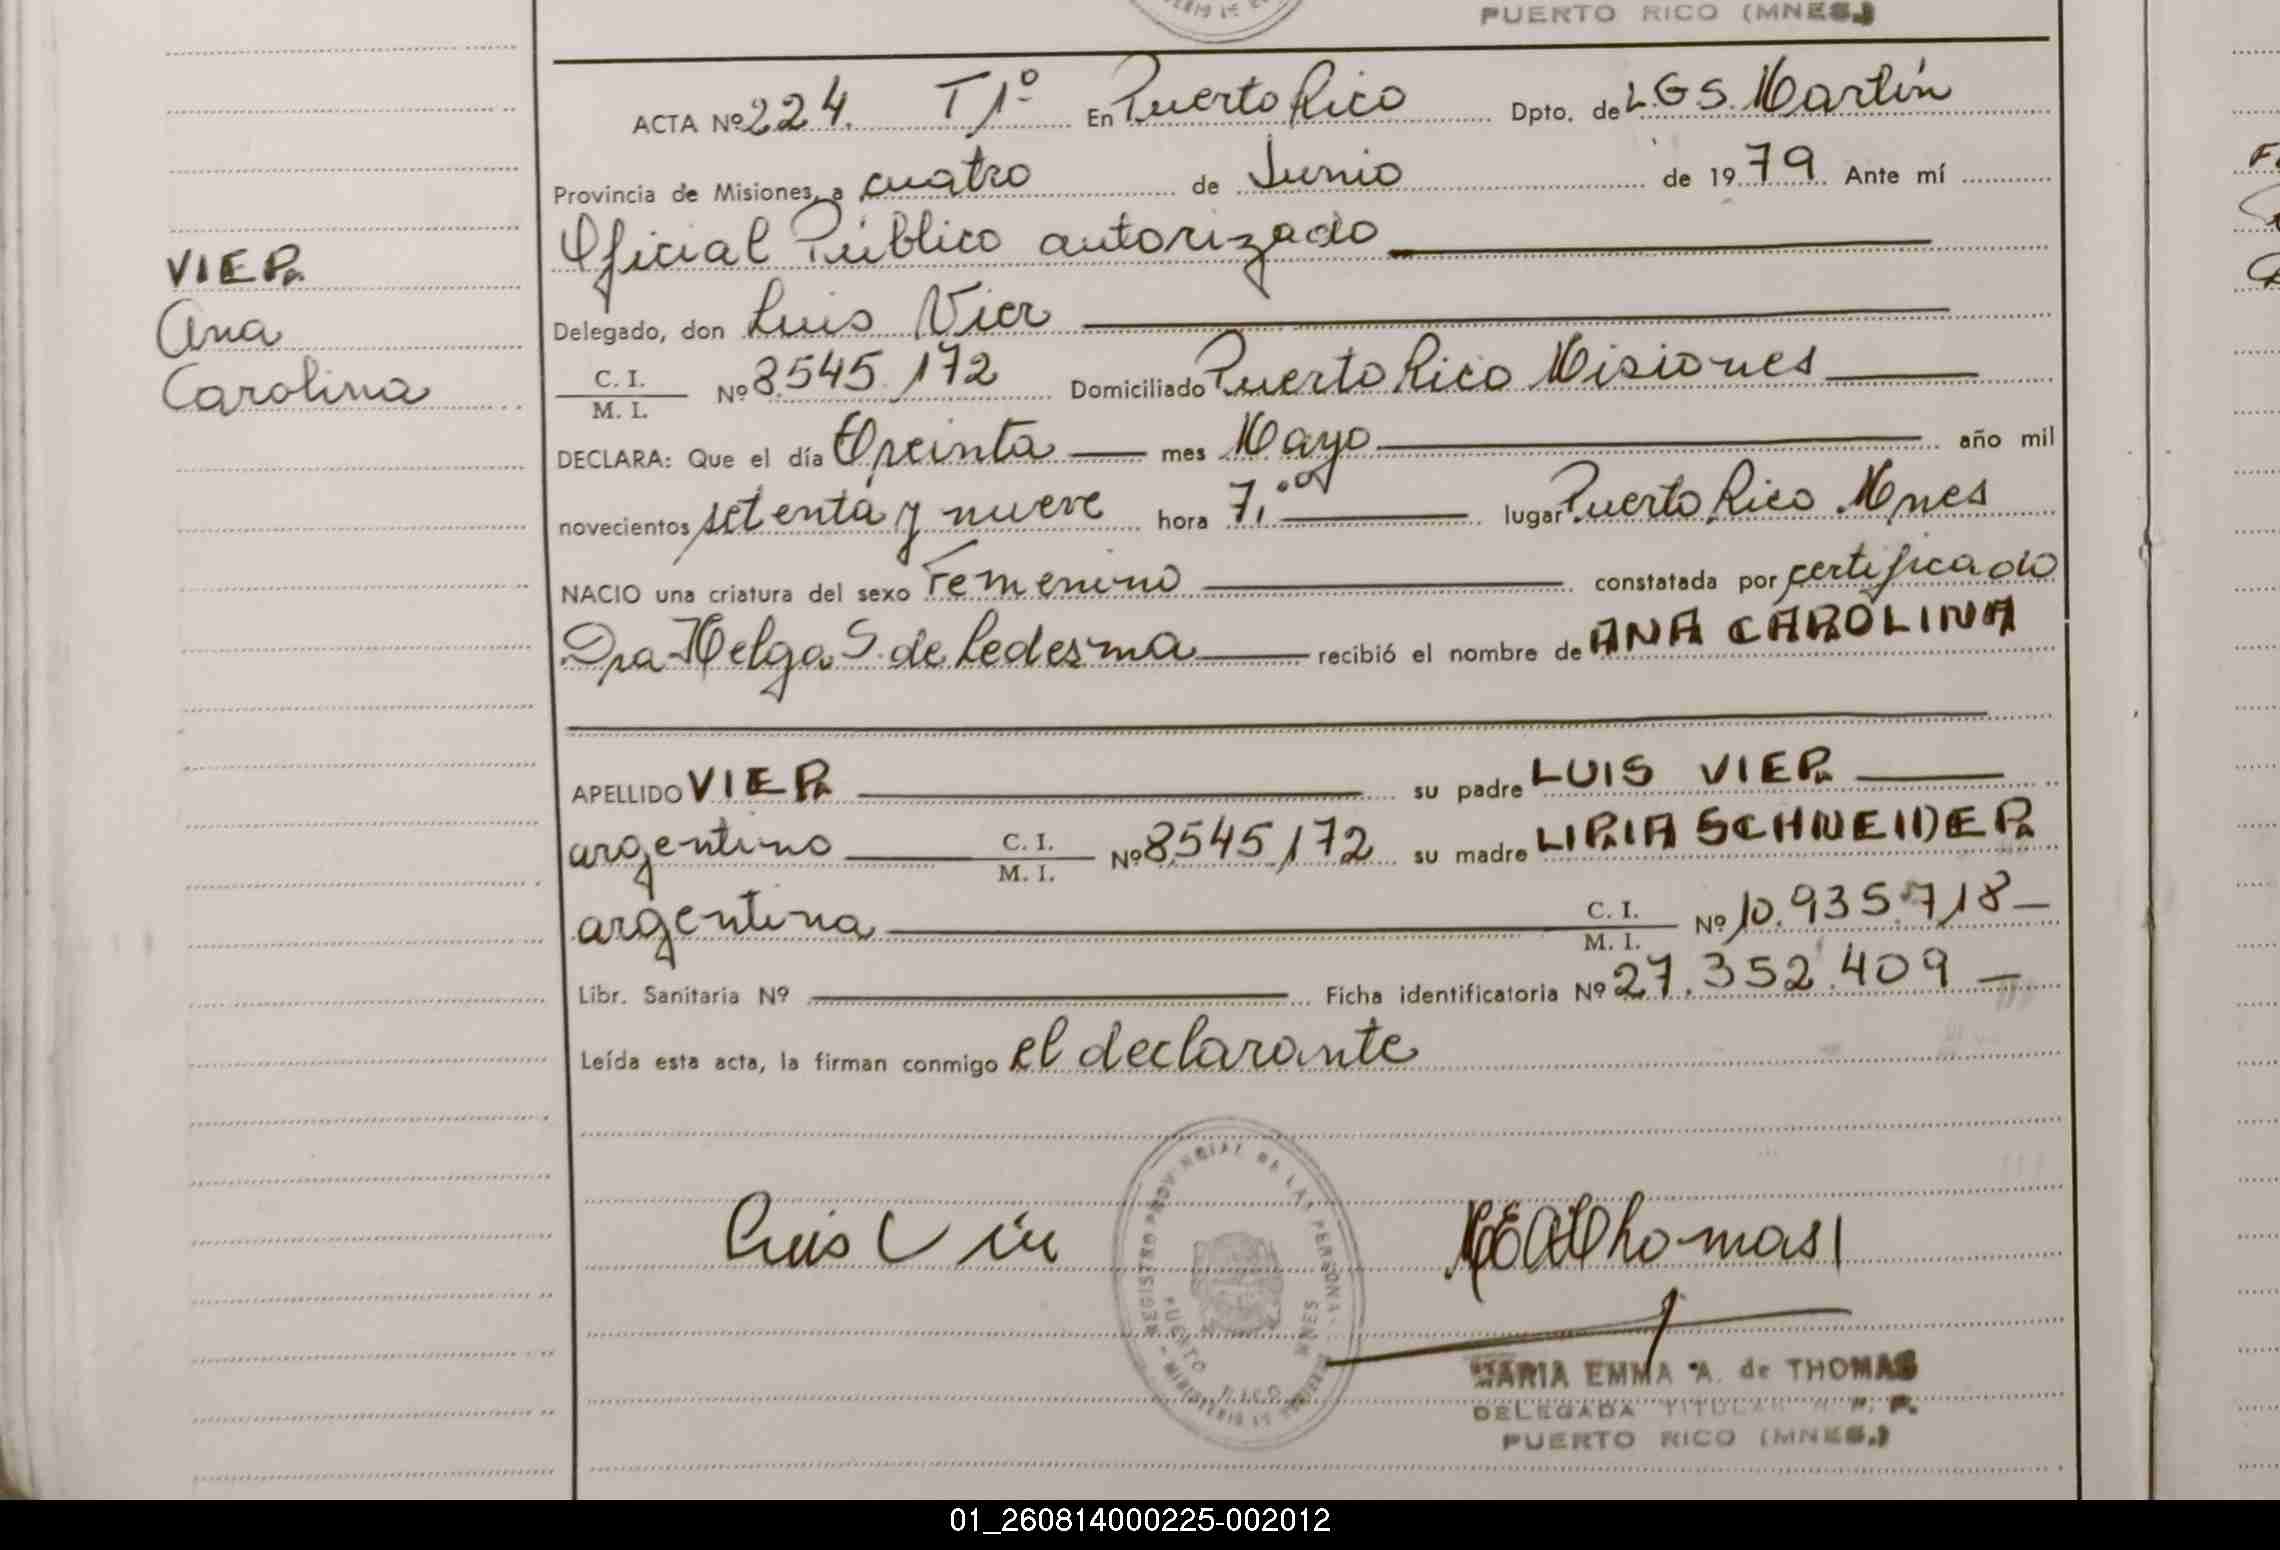 PUERTO RICO (MNES.)
ACTA Nº 224. T 1º En Puerto Rico Dpto. de L. G S. Martín
Provincia de Misiones, a cuatro de Junio de 1979 Ante mí
Oficial Público autorizado
VIER
Delegado, don Luis Vier
Ana
C. I.
M. I.
Nº 8.545.172 Domiciliado Puerto Rico Misiones
Carolina
DECLARA: Que el día Treinta mes Mayo año mil
novecientos setenta y nueve hora 7,00 lugar Puerto Rico Mnes
NACIO una criatura del sexo Femenino constatada por certificado
Dra Helga S. de Ledesma recibió el nombre de ANA CAROLINA
APELLIDO VIER su padre LUIS VIER
argentino C. I.
M. I.
Nº 8.545.172 su madre LIRIA SCHNEIDER
argentina C. I.
M. I.
Nº 10.935.718
Libr. Sanitaria Nº Ficha identificatoria Nº 27.352.409
Leída esta acta, la firman conmigo el declarante
Luis Vier
MEAThomas
REGISTRO PROVINCIAL DE LAS PERSONAS
PUERTO RICO MNES
MARIA EMMA A. de THOMAS
DELEGADA TITULAR
PUERTO RICO (MNES.)
01_260814000225-002012